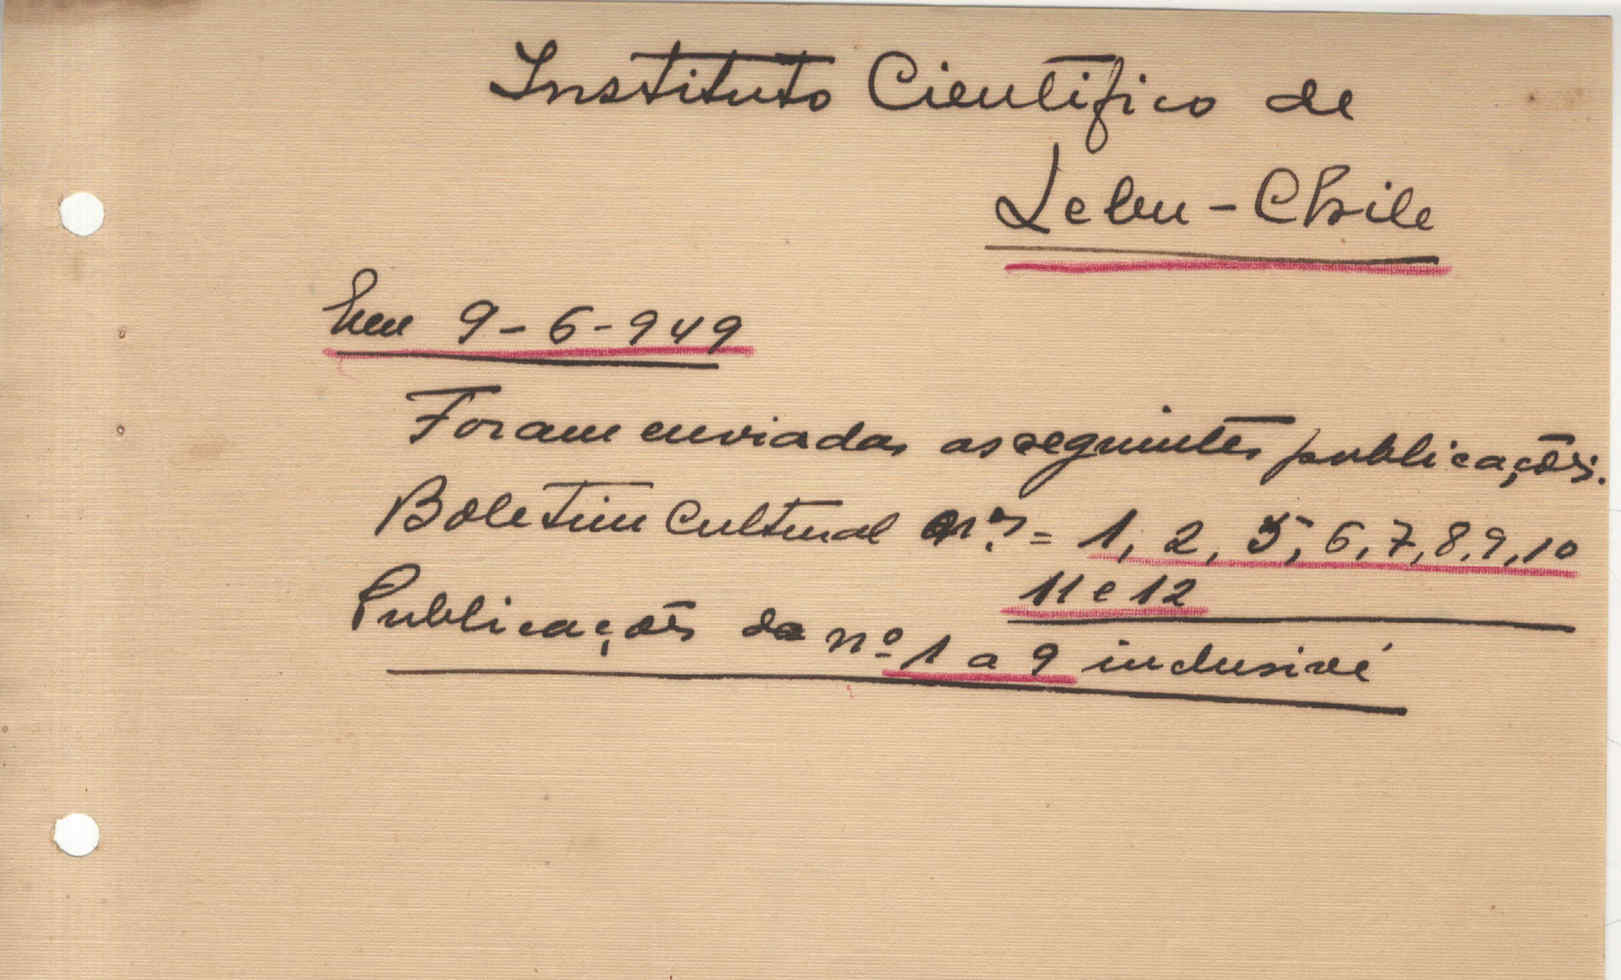 Instituto Cientifico de
Lebu - Chile
Em 9-6-949
Foram enviadas as seguintes publicações.
Boletim Cultural nºs = 1, 2, 5, 6, 7, 8, 9, 10
11 e 12
Publicações do nº 1 a 9 inclusivé